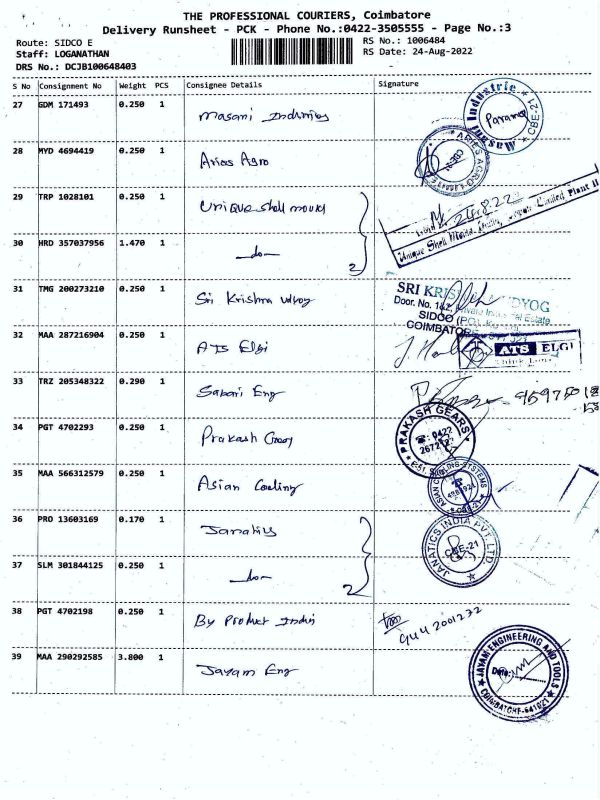 THE PROFESSIONAL COURIERS, Coimbatore
Delivery Runsheet - PCK - Phone No.:0422-3505555 - Page No.:3
Route: SIDCO E
RS No.: 1006484
Staff: LOGANATHAN
RS Date: 24-Aug-2022
DRS No.: DCJB100648403
S No Consignment No Weight PCS Consignee Details Signature
27 GDM 171493 0.250 1 Masani Industries
Masani Industrie CBE-21
28 MYD 4694419 0.250 1 Aries Agro
ARIES AGRO
29 TRP 1028101 0.250 1 Unique Shell mould
24.8.22
Unique Shell Moulds Limited Plant II
30 HRD 357037956 1.470 1 -do- 2
31 TMG 200273210 0.250 1 Sri Krishna udyog
SRI KRIS DYOG
Door. No. Estate
SIDCO
COIMBATORE
32 MAA 287216904 0.250 1 ATS Elgi
ATS ELGI
33 TRZ 205348322 0.290 1 Sabari Eng
34 PGT 4702293 0.250 1 Prakash Gears
PRAKASH GEARS
0422
35 MAA 566312579 0.250 1 Asian Cooling
ASIAN COOLING SYSTEMS
36 PRO 13603169 0.170 1 Janatics
JANATICS INDIA PVT LTD
CBE-21
37 SLM 301844125 0.250 1 -do- 2
38 PGT 4702198 0.250 1 By Product Indus
9442001232
39 MAA 290292585 3.800 1 Jayam Eng
JAYAM ENGINEERING AND TOOLS
Date:
COIMBATORE-641021